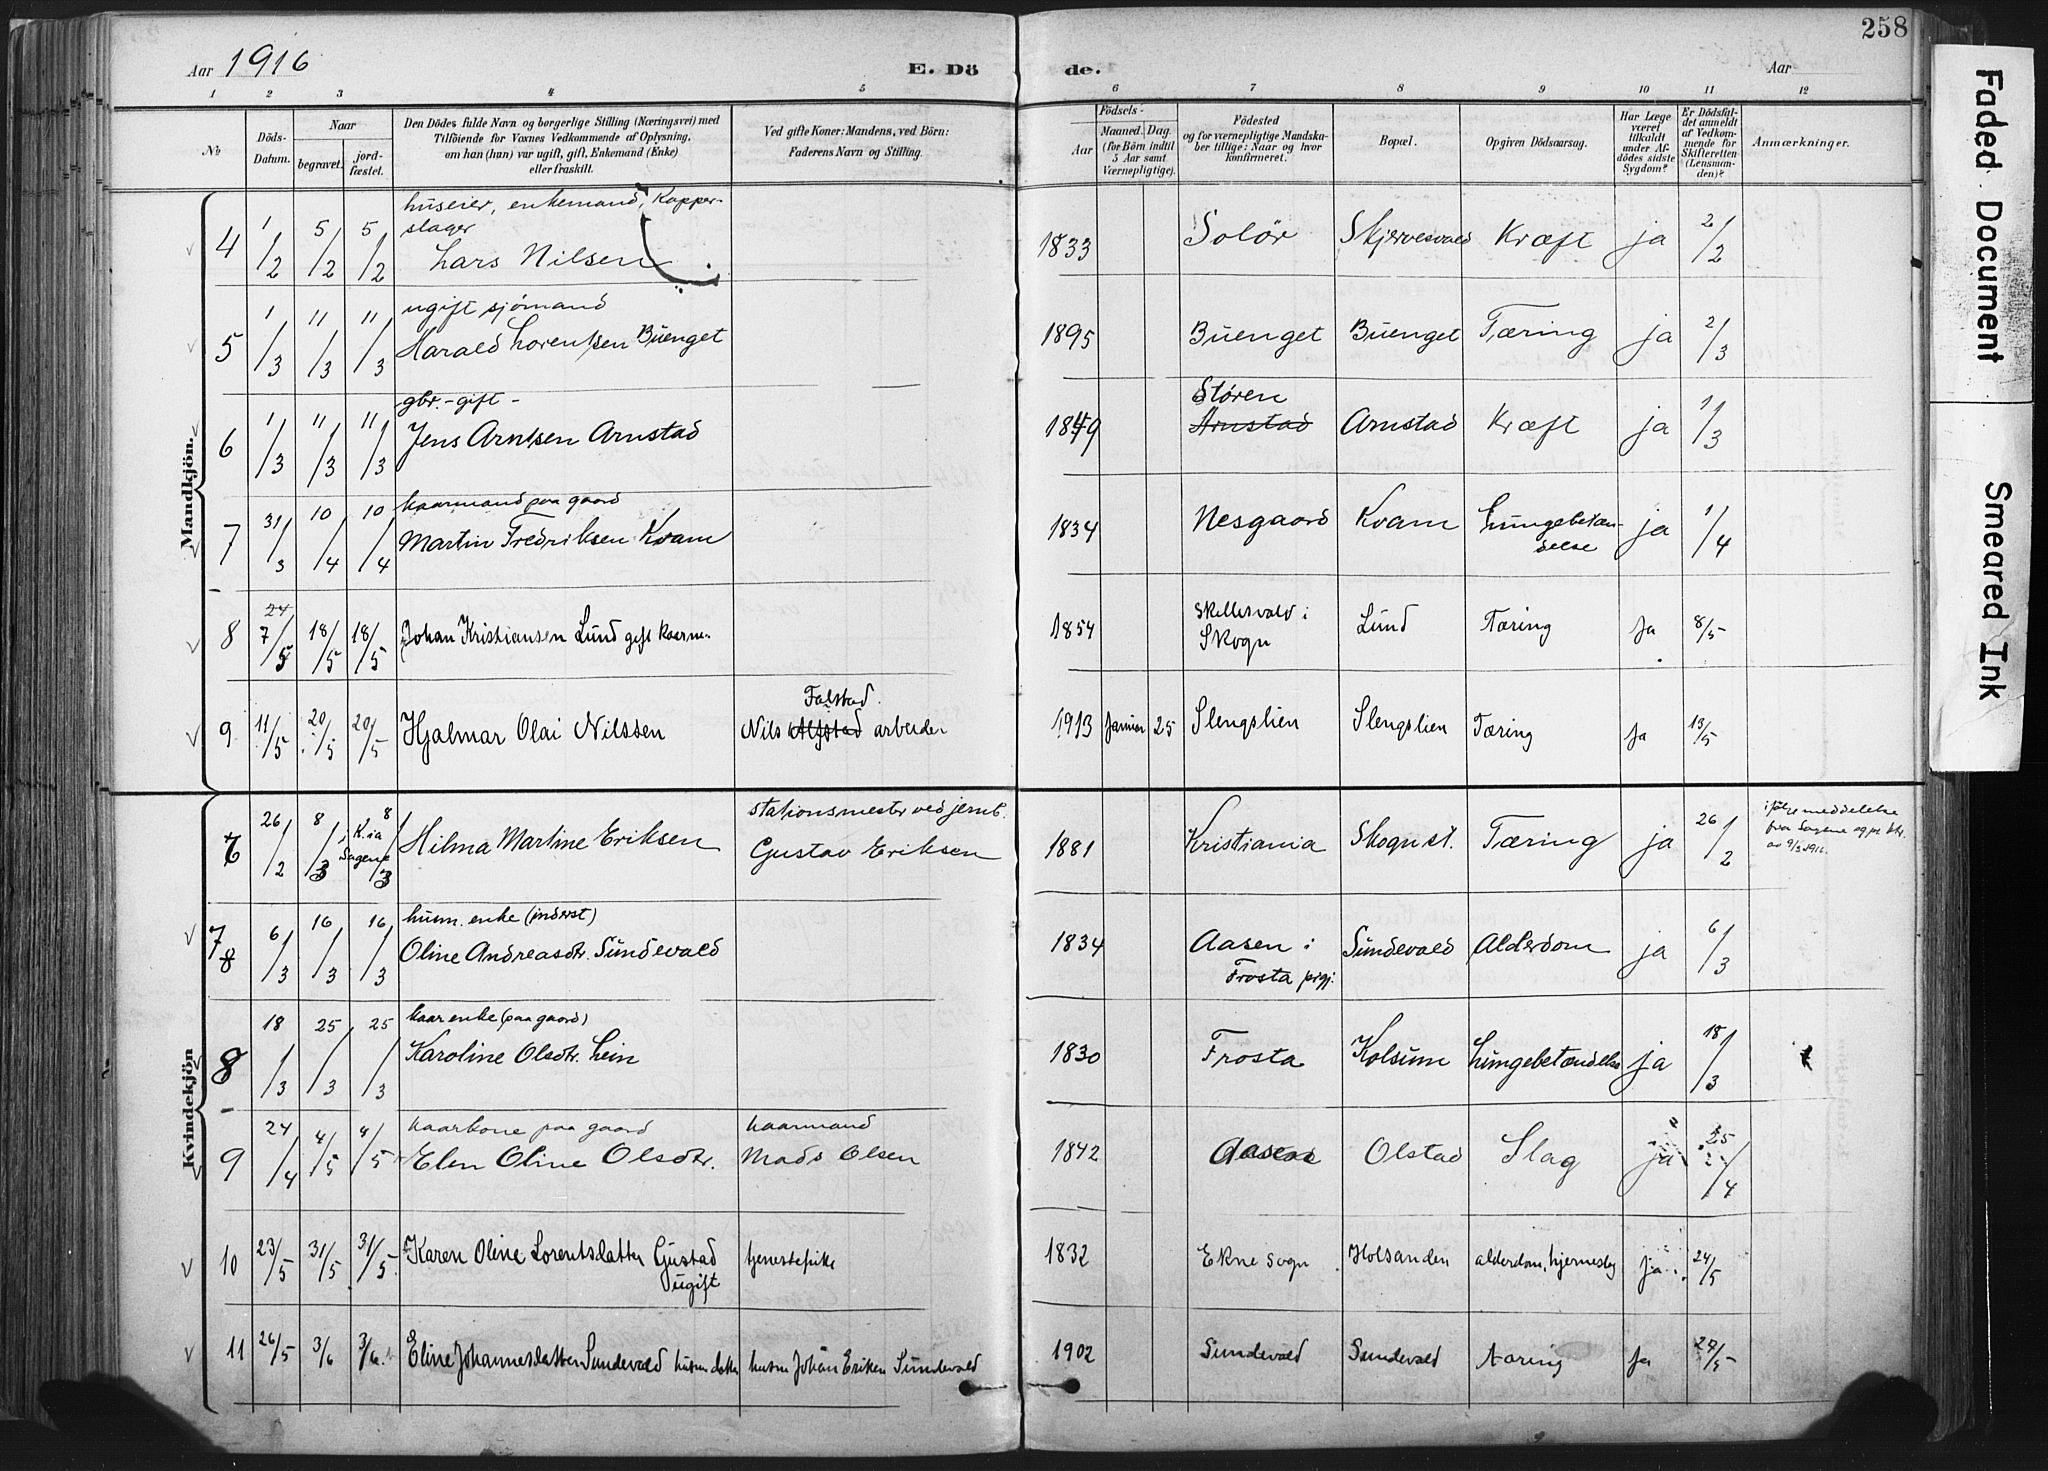 258
Aar 1916
E. Dö de.
Aar
1 2 3 4 5 6 7 8 9 10 11 12
№
Döds-Datum.
Naar
begravet.
jord-fæstet.
Den Dödes fulde Navn og borgerlige Stilling (Næringsvei) med
Tilföiende for Voxnes Vedkommende af Oplysning,
om han (hun) var ugift, gift, Enkemand (Enke)
eller fraskilt.
Ved gifte Koner: Mandens, ved Börn:
Faderens Navn og Stilling.
Födsels-
Aar
Maaned. Dag.
(for Börn indtil
5 Aar samt
Værnepligtige).
Födested
og for værnepligtige Mandska-
ber tillige: Naar og hvor
konfirmeret.
Bopæl.
Opgiven Dödsaarsag.
Har Læge
været
tilkaldt
under Af-
dödes sidste
Sygdom?
Er Dödsfal-
det anmeldt
af Vedkom-
mende for
Skifteretten
(Lensman-
den)?
Anmærkninger.
Mandkjön.
huseier, enkemand, Kopper-
slager
4 1/2 5/2 5/2 Lars Nilsen 1833 Solör Skjervesvald Kræft ja 2/2
ugift sjömand
5 1/3 11/3 11/3 Harald Lorentsen Buenget 1895 Buenget Buenget Tæring ja 2/3
gbr. - gift - Stören
6 1/3 11/3 11/3 Jens Arntsen Arnstad 1849 Arnstad Arnstad Kræft ja 1/3
kaarmand paa gaard
7 31/3 10/4 10/4 Martin Fredriksen Kvam 1834 Nesgaard Kvam Lungebetæn-
delse ja 1/4
8 24 7/5 18/5 18/5 Johan Kristiansen Lund gift kaarm. 1854 Skellesvald i
Skogn Lund Tæring Ja 8/5
Falstad.
9. 11/5 20/5 20/5 Hjalmar Olai Nilssen Nils Alfstad arbeider 1913 Januar 25 Slengslien Slengslien Tæring Ja 13/5
Kvindekjön
stationsmester ved jernb.
6 26/2 8/3 K.ia Sagene 8/3 Hilma Martine Eriksen Gustav Eriksen 1881 Kristiania Skogn st. Tæring ja 26/2 ifölge meddelelse
fra Sagene
av 9/3 1916.
husm. enke (inderst)
7 8 6/3 16/3 16/3 Oline Andreasdtr. Sundevald 1834 Aasen i
Frosta prgj. Sundevald Alderdom ja 6/3
kaarenke (paa gaard)
8 18/3 25/3 25/3 Karoline Olsdtr. Lein 1830 Frosta Kolsum Lungebetændelse ja 18/3
kaarkone paa gaard kaarmand
9 24/4 4/5 4/5 Elen Oline Olsdtr. Mads Olsen 1842 Aasen Olstad Slag ja 25/4
10 23/5 31/5 31/5 Karen Oline Lorentsdatter Gjustad
ugift tjenestepike 1832 Ekne sogn Holsanden alderdom, hjerneslag ja 24/5
11 26/5 3/6 3/6 Eline Johannesdatter Sundevald husm datter husm Johan Eriksen Sundevald 1902 Sundevald Sundevald tæring Ja 27/5
Faded Document
Smeared Ink